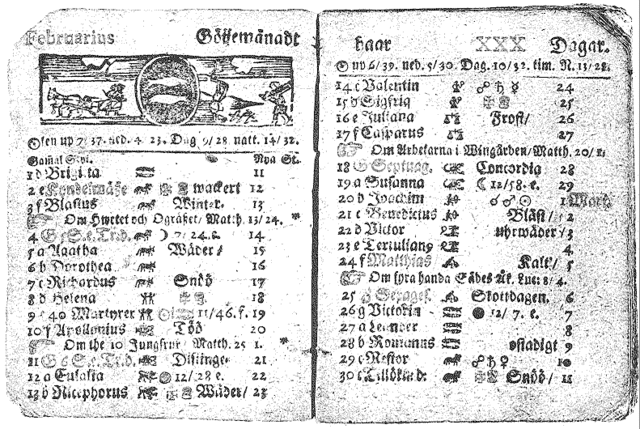 Februarius Götjemånadt
Solen up 7/37. ned. 4 23. Dag 9/28 natt. 14/32.
Gamal Styl. Nya St.
1 d Brigita 11
2 e Kyndelmässe wackert 12
3 f Blasius Winter. 13
Om Hwetet och Ogräset/ Matth. 13/24.
4 G 5.S.e.Tr.d. 7/24.e. 14
5 a Agatha Wäder/ 15
6 b Dorothea 16
7 c Richardus Snöö 17
8 d Helena 18
9 40 Martyrer 11/46.f. 19
10 f Apollonius Töö 20
Om the 10 Jungfrur/ Matth. 25 1.
11 G 6.S.e.Tr.d. 21
12 a Eulalia 12/28 e. 22
13 b Nicephorus Wäder/ 23
haar XXX Dagar.
up 6/39. ned. 5/30. Dag. 10/32. tim. N. 13/28.
14 c Valentin ☍ ♄ ☿ 24
15 d Sigfrid 25
16 e Juliana Frost/ 26
17 f Casparus 27
Om Arbetarna i Wingården/ Matth. 20/1.
18 G Septuag. Concordia 28
19 a Susanna ☾ 12/58. e. 29
20 b Joachim ☌ ♂ ☉ 1 Mart.
21 c Benedictus Bläst/ 2
22 d Victor uhrwäder/ 3
23 e Tertuliang 4
24 f Matthias Kalt/ 5
Om fyra handa Sädes Åk. Luc: 8/4.
25 G Sexages. Skottdagen. 6
26 g Victorin 12/7. e. 7
27 a Leander 8
28 b Romanus ostadigt 9
29 c Nestor ☍ ♄ ♀ 10
30 c Tillökn d. Snöö/ 11